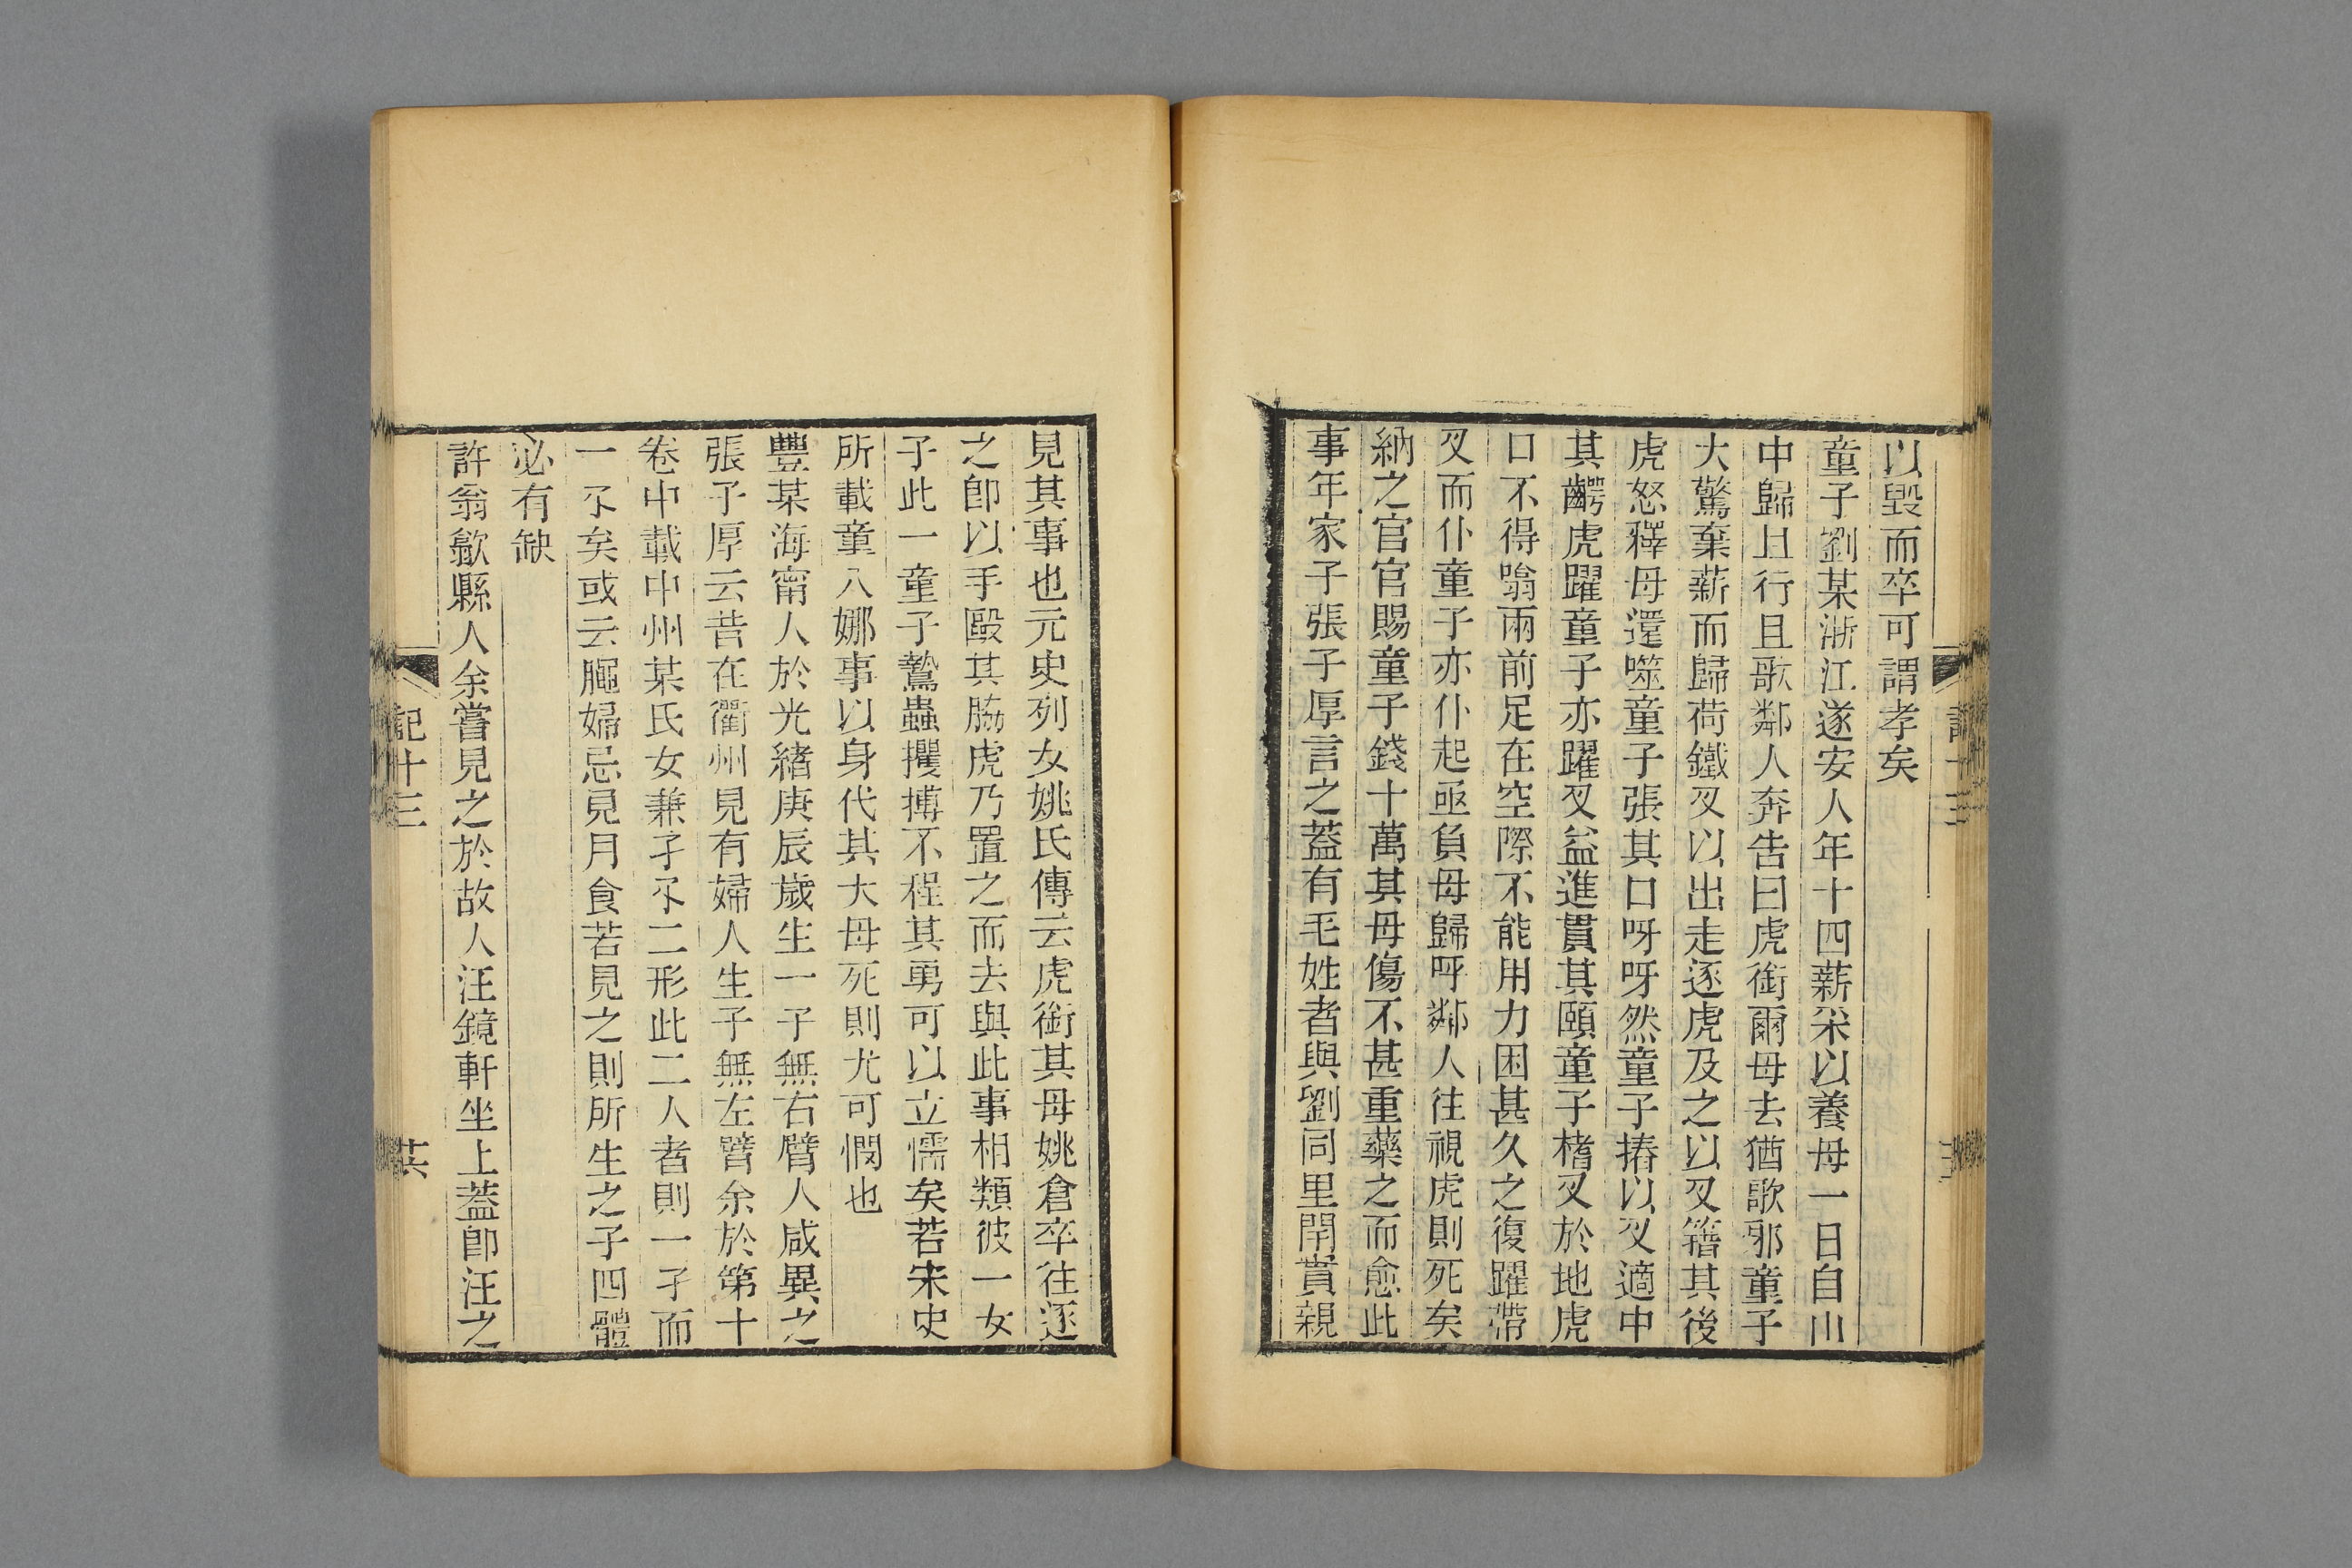 以毀而卒可謂孝矣
童子劉某浙江遂安人年十四薪采以養母一日自山
中歸且行且歌鄰人奔告曰虎銜爾母去猶歌邪童子
大驚棄薪而歸荷鐵叉以出走逐虎及之以叉籍其後
虎怒釋母還噬童子張其口呀呀然童子摏以叉適中
其齶虎躍童子亦躍叉益進貫其頤童子楮叉於地虎
口不得噏兩前足在空際不能用力困甚久之復躍帶
叉而仆童子亦仆起亟負母歸呼鄰人往視虎則死矣
納之官官賜童子錢十萬其母傷不甚重藥之而愈此
事年家子張子厚言之蓋有毛姓者與劉同里閈實親
見其事也元史列女姚氏傳云虎銜其母姚倉卒往逐
之卽以手毆其脇虎乃置之而去與此事相類彼一女
子此一童子鷙蟲攫搏不程其勇可以立懦矣若宋史
所載童八娜事以身代其大母死則尤可憫也
豐某海甯人於光緒庚辰歲生一子無右臂人咸異之
張子厚云昔在衢州見有婦人生子無左臂余於第十
卷中載中州某氏女兼孑孓二形此二人者則一孑而
一孓矣或云䵴婦忌見月食若見之則所生之子四體
必有缺
許翁歙縣人余嘗見之於故人汪鏡軒坐上蓋卽汪之
記十三
共